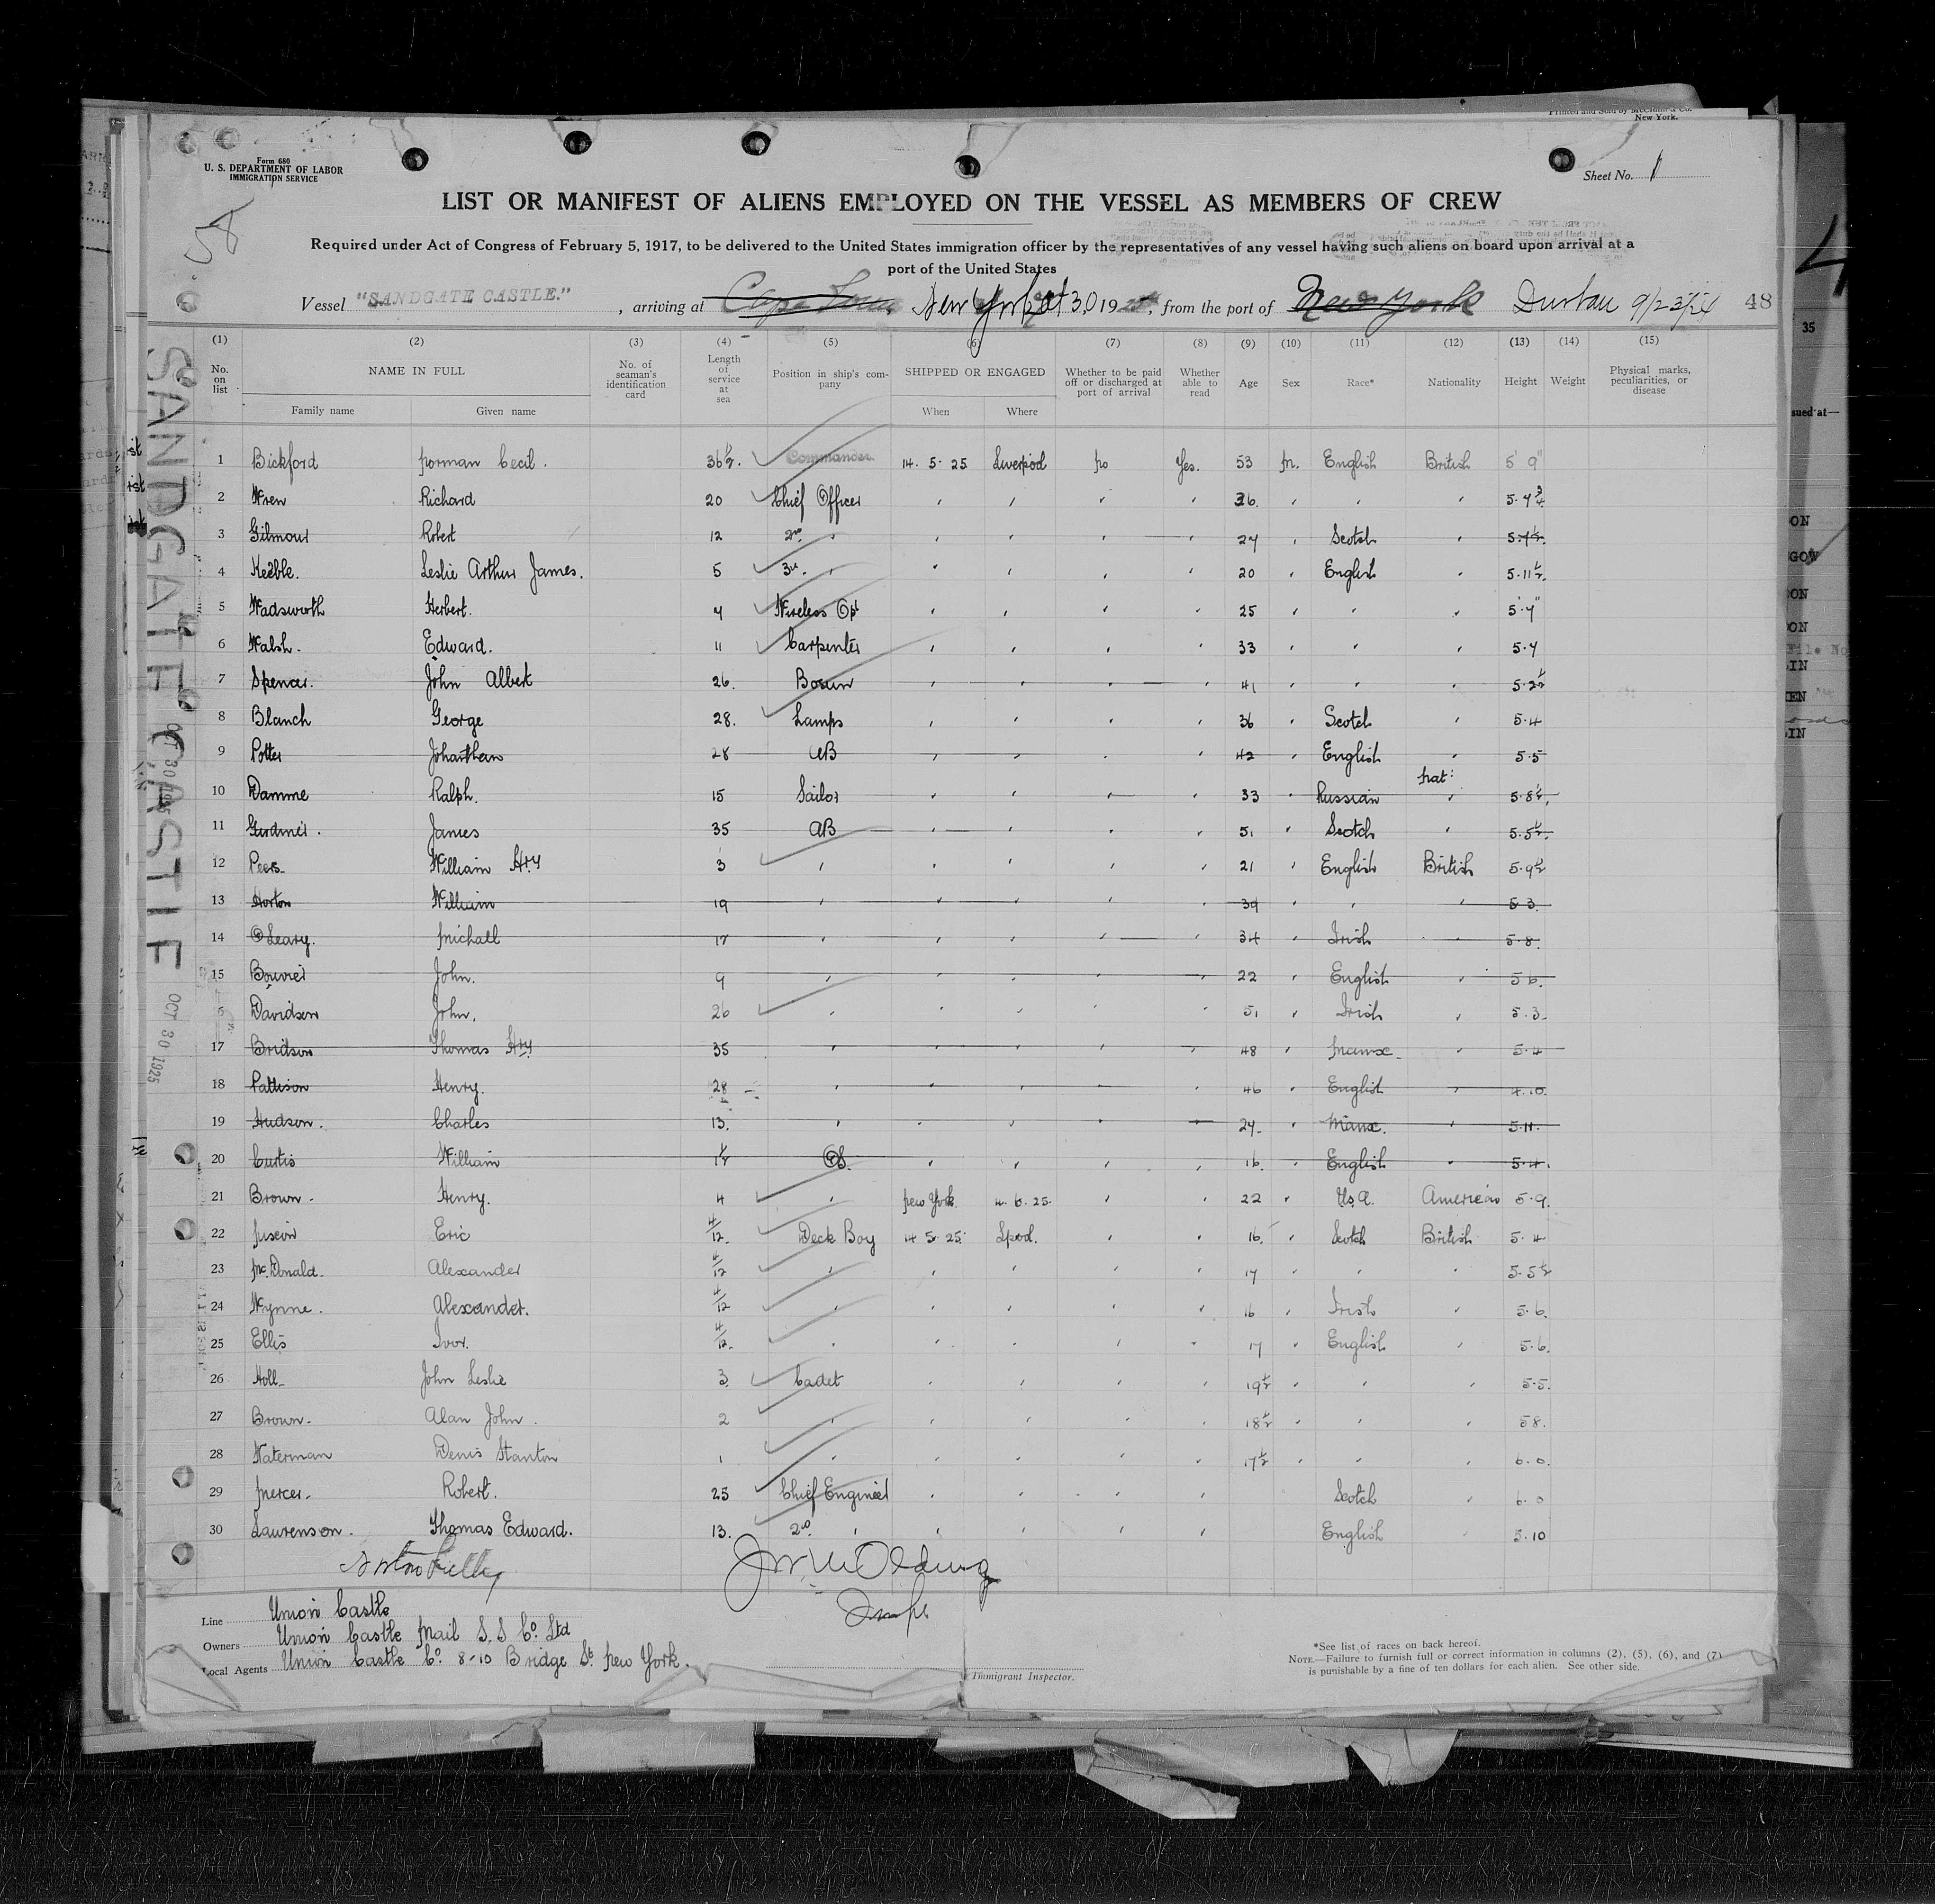 Printed and Sold by
New York.
Form 680
U. S. DEPARTMENT OF LABOR
IMMIGRATION SERVICE
Sheet No. 1
58
LIST OR MANIFEST OF ALIENS EMPLOYED ON THE VESSEL AS MEMBERS OF CREW
Required under Act of Congress of February 5, 1917, to be delivered to the United States immigration officer by the representatives of any vessel having such aliens on board upon arrival at a
port of the United States
Vessel "SANDGATE CASTLE." , arriving at Cape Town New York Oct 30, 1925, from the port of New York Durban 9/23/24 48
(1) (2) (3) (4) (5) (6) (7) (8) (9) (10) (11) (12) (13) (14) (15)
No. on list NAME IN FULL No. of seaman's identification card Length of service at sea Position in ship's company SHIPPED OR ENGAGED Whether to be paid off or discharged at port of arrival Whether able to read Age Sex Race* Nationality Height Weight Physical marks, peculiarities, or disease
Family name Given name When Where
1 Bickford Norman Cecil. 36½. Commander 14. 5. 25 Liverpool No Yes. 53 M. English British 5' 9"
2 Wren Richard 20 Chief Officer " " " " 36. " " " 5.7¾
3 Gilmour Robert 12 2nd " " " " " 27 " Scotch " 5.7½.
4 Keeble. Leslie Arthur James. 5 3rd. " " " " " 20 " English " 5.11½.
5 Wadsworth Herbert. 4 Wireless Opt " " " " 25 " " " 5'7"
6 Walsh. Edward. 11 Carpenter " " " " 33 " " " 5.7
7 Spencer. John Albert 26. Bosun " " " " 41 " " " 5.2½
8 Blanch George 28. Lamps " " " " 36 " Scotch " 5.4
9 Potter Johnathan 28 AB " " " " 42 " English " 5.5
10 Damme Ralph. 15 Sailor " " " " 33 " Russian Nat: " 5.8½.
11 Gardiner. James 35 AB " " " " 51 " Scotch " 5.5½.
12 Peers. William Hry 3 " " " " " 21 " English British 5.9½
13 Horton William 19 " " " " " 39 " " " 5 3.
14 O'Leary. Michall 17 " " " " " 34 " Irish " 5.8.
15 Bouvier John. 9 " " " " " 22 " English " 5 6.
Davidson John. 26 " " " " " 51 " Irish " 5.3.
17 Bridson Thomas Hry 35 " " " " " 48 " Manx. " 5.4
18 Pattison Henry. 28 " " " " " 46 " English " 4.10.
19 Hudson. Charles 13. " " " " " 27. " Manx. " 5.11.
20 Curtis William 1½ OS. " " " " 16. " English " 5.4.
21 Brown. Henry. 4 " New York. 4. 6. 25. " " 22 " U.S.A. American 5.9.
22 Eric 4/12. Deck Boy 14 5 25. Lpool. " " 16. " Scotch British 5.4
23 McDonald. Alexander 4/12 " " " " " 17 " " " 5.5½
24 Wynne. Alexander. 4/12 " " " " " 16 " Irish " 5.6.
25 Ellis Ivor. 4/12. " " " " " 17 " English " 5.6.
26 Holl. John Leslie 3 Cadet " " " " 19½ " " " 5.5.
27 Brown. Alan John. 2 " " " " " 18½ " " " 5 8.
28 Waterman Denis Stanton 1 " " " " " 17½ " " " 6.0.
29 Mercer. Robert. 25 Chief Engineer " " " " Scotch " 6.0
30 Laurenson. Thomas Edward. 13. 2nd. " " " " " English " 5.10
Line Union Castle
Owners Union Castle Mail S.S Co. Ltd
Local Agents Union Castle Co. 8-10 Bridge St. New York.
Immigrant Inspector.
*See list of races on back hereof.
NOTE.—Failure to furnish full or correct information in columns (2), (5), (6), and (7)
is punishable by a fine of ten dollars for each alien. See other side.
SANDGATE CASTLE
OCT 30 1925
OCT 30 1925
35
sued at—